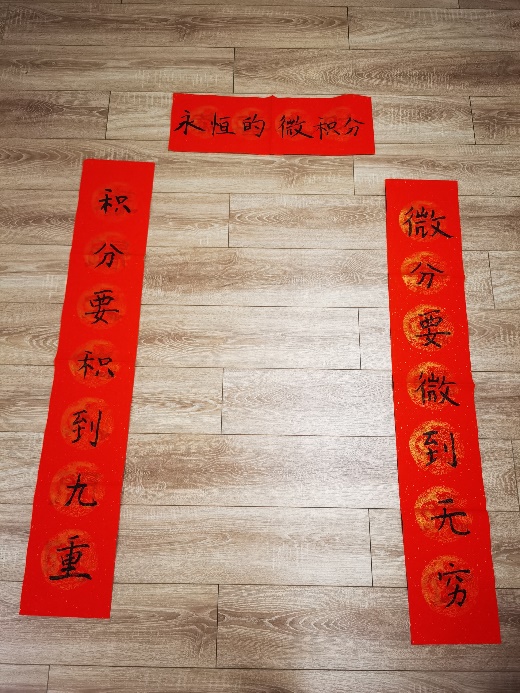 永恒的微积分
积分要积到九重
微分要微到无穷